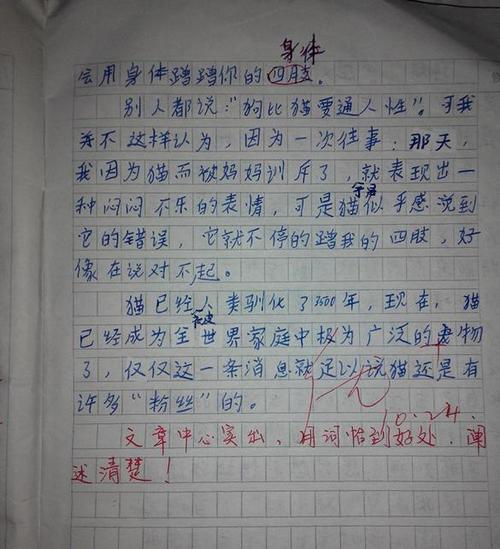 身体
会用身体蹭蹭你的四肢。
别人都说:“狗比猫要通人性”。可我
并不这样认为,因为一次往事:那天,
我因为猫而被妈妈训斥了,就表现出一
种闷闷不乐的表情,可是猫似乎感说到
它的错误,它就不停的蹭我的四肢,好
像在说对不起。
猫已经人类驯化了3500年,现在,猫
已经成为全世界家庭中极为广泛的宠物
了,仅仅这一条消息就足以说猫还是有
许多“粉丝”的。
优
10.24.
文章中心突出,用词恰到好处,阐
述清楚!